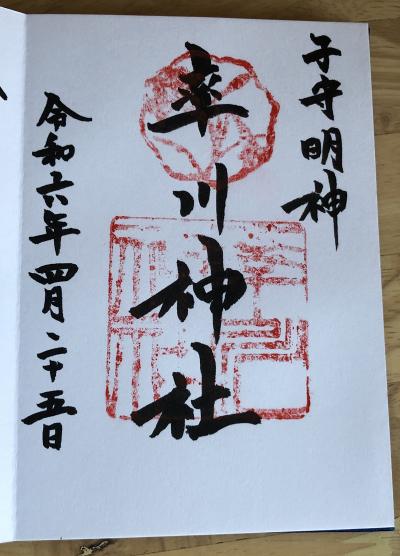 子守明神
率川神社
令和六年四月二十五日